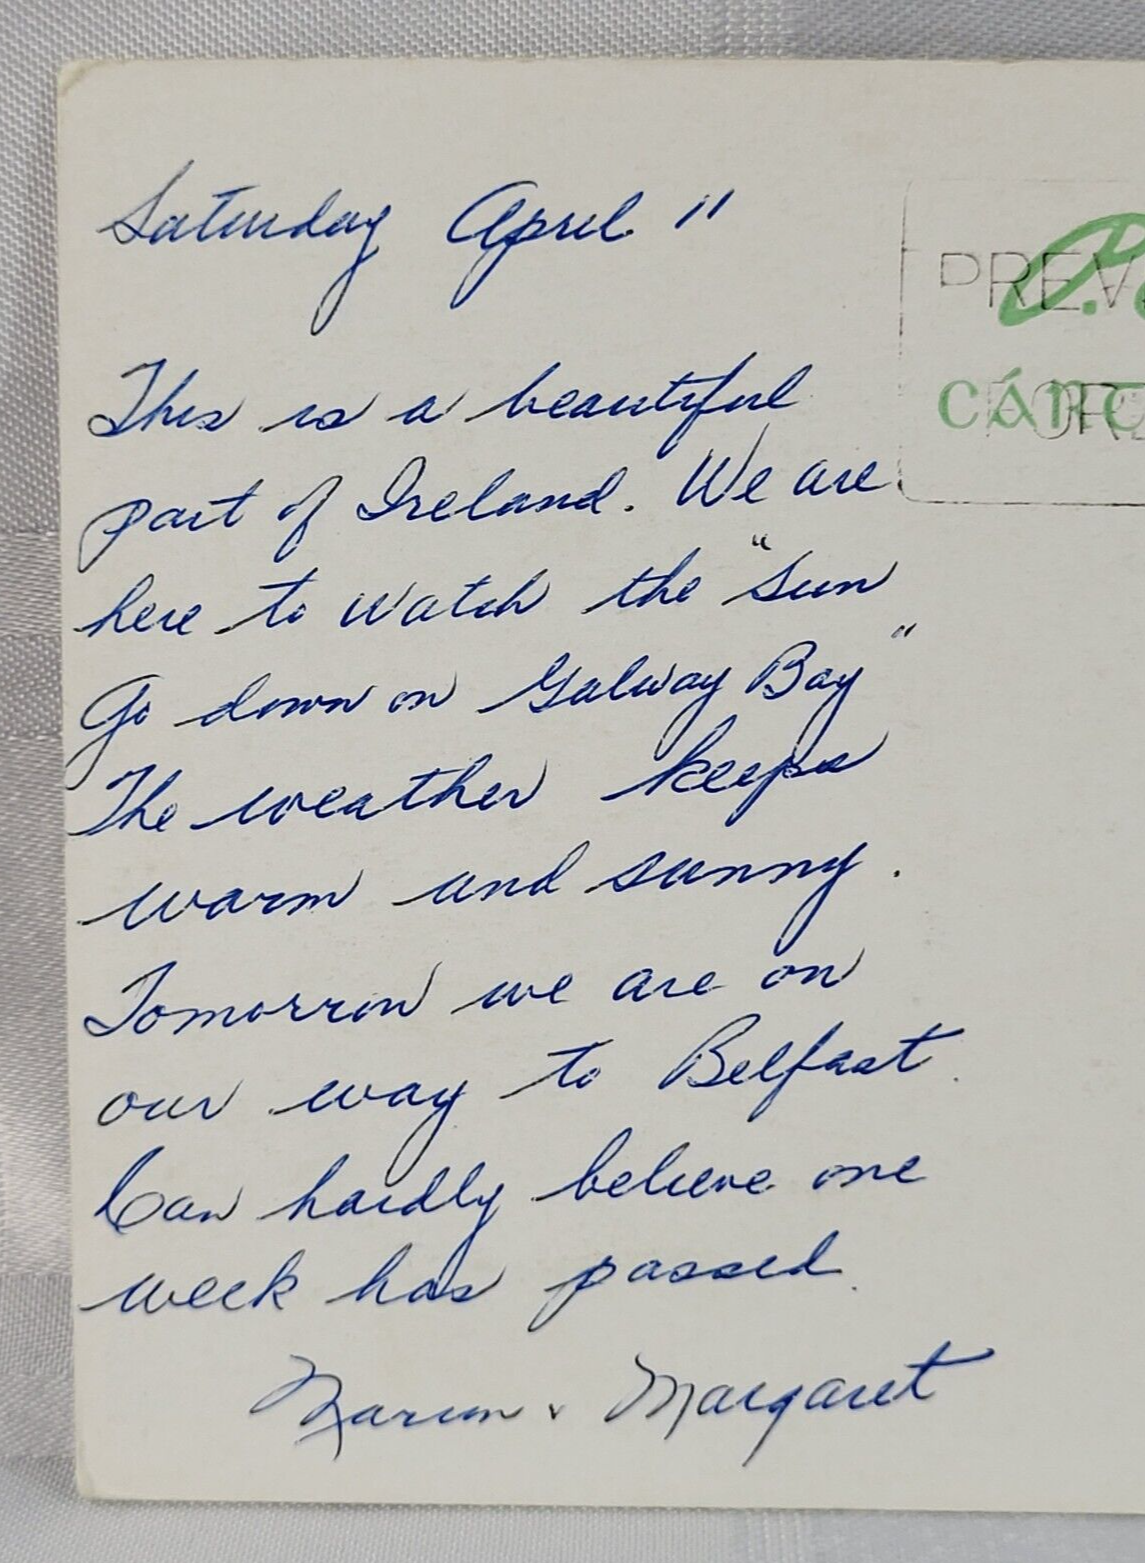 Saturday April 11
This is a beautiful
part of Ireland. We are
here to watch the "Sun
Go down on Galway Bay"
The weather keeps
warm and sunny.
Tomorrow we are on
our way to Belfast.
Can hardly believe one
week has passed.
Marion & Margaret
PREV
CÁRT